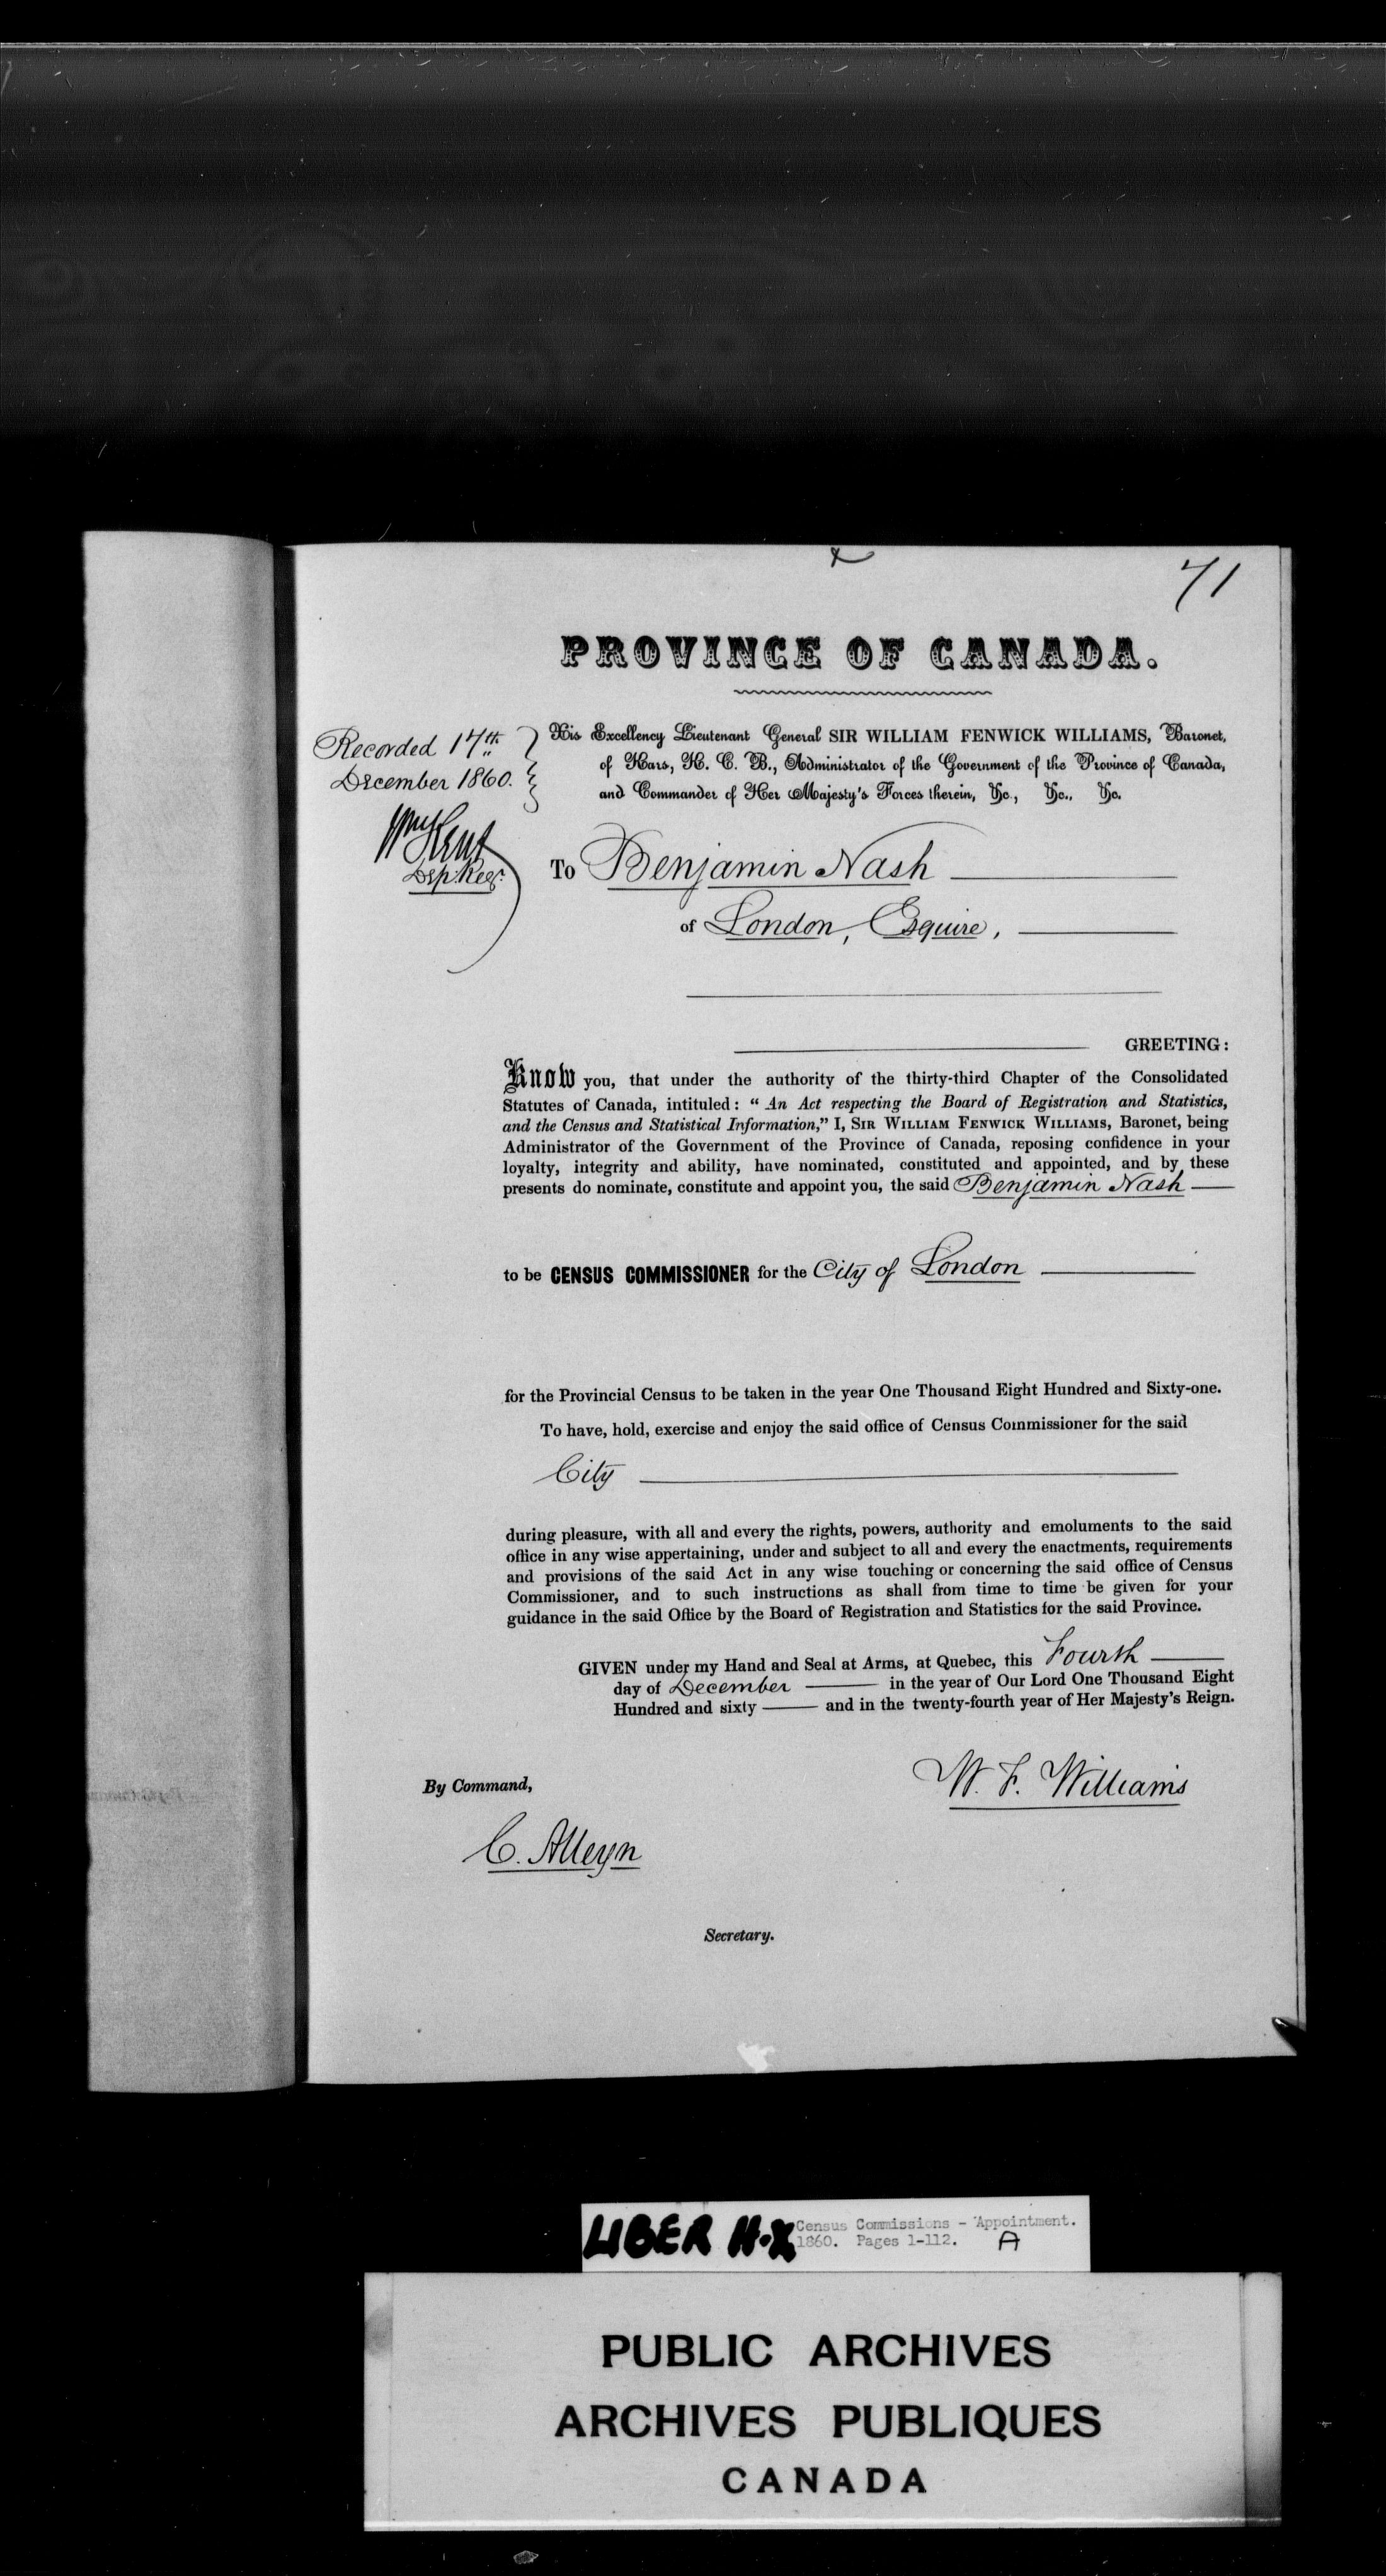 71
PROVINCE OF CANADA.
Recorded 17th
December 1860.
Wm Kent
Dep. Regr.
His Excellency Lieutenant General SIR WILLIAM FENWICK WILLIAMS, Baronet,
of Kars, K. C. B., Administrator of the Government of the Province of Canada,
and Commander of Her Majesty's Forces therein, &c., &c., &c.
To Benjamin Nash
of London, Esquire,
GREETING:
Know you, that under the authority of the thirty-third Chapter of the Consolidated
Statutes of Canada, intituled: “ An Act respecting the Board of Registration and Statistics,
and the Census and Statistical Information,” I, SIR WILLIAM FENWICK WILLIAMS, Baronet, being
Administrator of the Government of the Province of Canada, reposing confidence in your
loyalty, integrity and ability, have nominated, constituted and appointed, and by these
presents do nominate, constitute and appoint you, the said Benjamin Nash
to be CENSUS COMMISSIONER for the City of London
for the Provincial Census to be taken in the year One Thousand Eight Hundred and Sixty-one.
To have, hold, exercise and enjoy the said office of Census Commissioner for the said
City
during pleasure, with all and every the rights, powers, authority and emoluments to the said
office in any wise appertaining, under and subject to all and every the enactments, requirements
and provisions of the said Act in any wise touching or concerning the said office of Census
Commissioner, and to such instructions as shall from time to time be given for your
guidance in the said Office by the Board of Registration and Statistics for the said Province.
GIVEN under my Hand and Seal at Arms, at Quebec, this Fourth
day of December in the year of Our Lord One Thousand Eight
Hundred and sixty and in the twenty-fourth year of Her Majesty's Reign.
W. F. Williams
By Command,
C. Alleyn
Secretary.
LIBER H-X Census Commissions - Appointment.
1860. Pages 1-112. A
PUBLIC ARCHIVES
ARCHIVES PUBLIQUES
CANADA